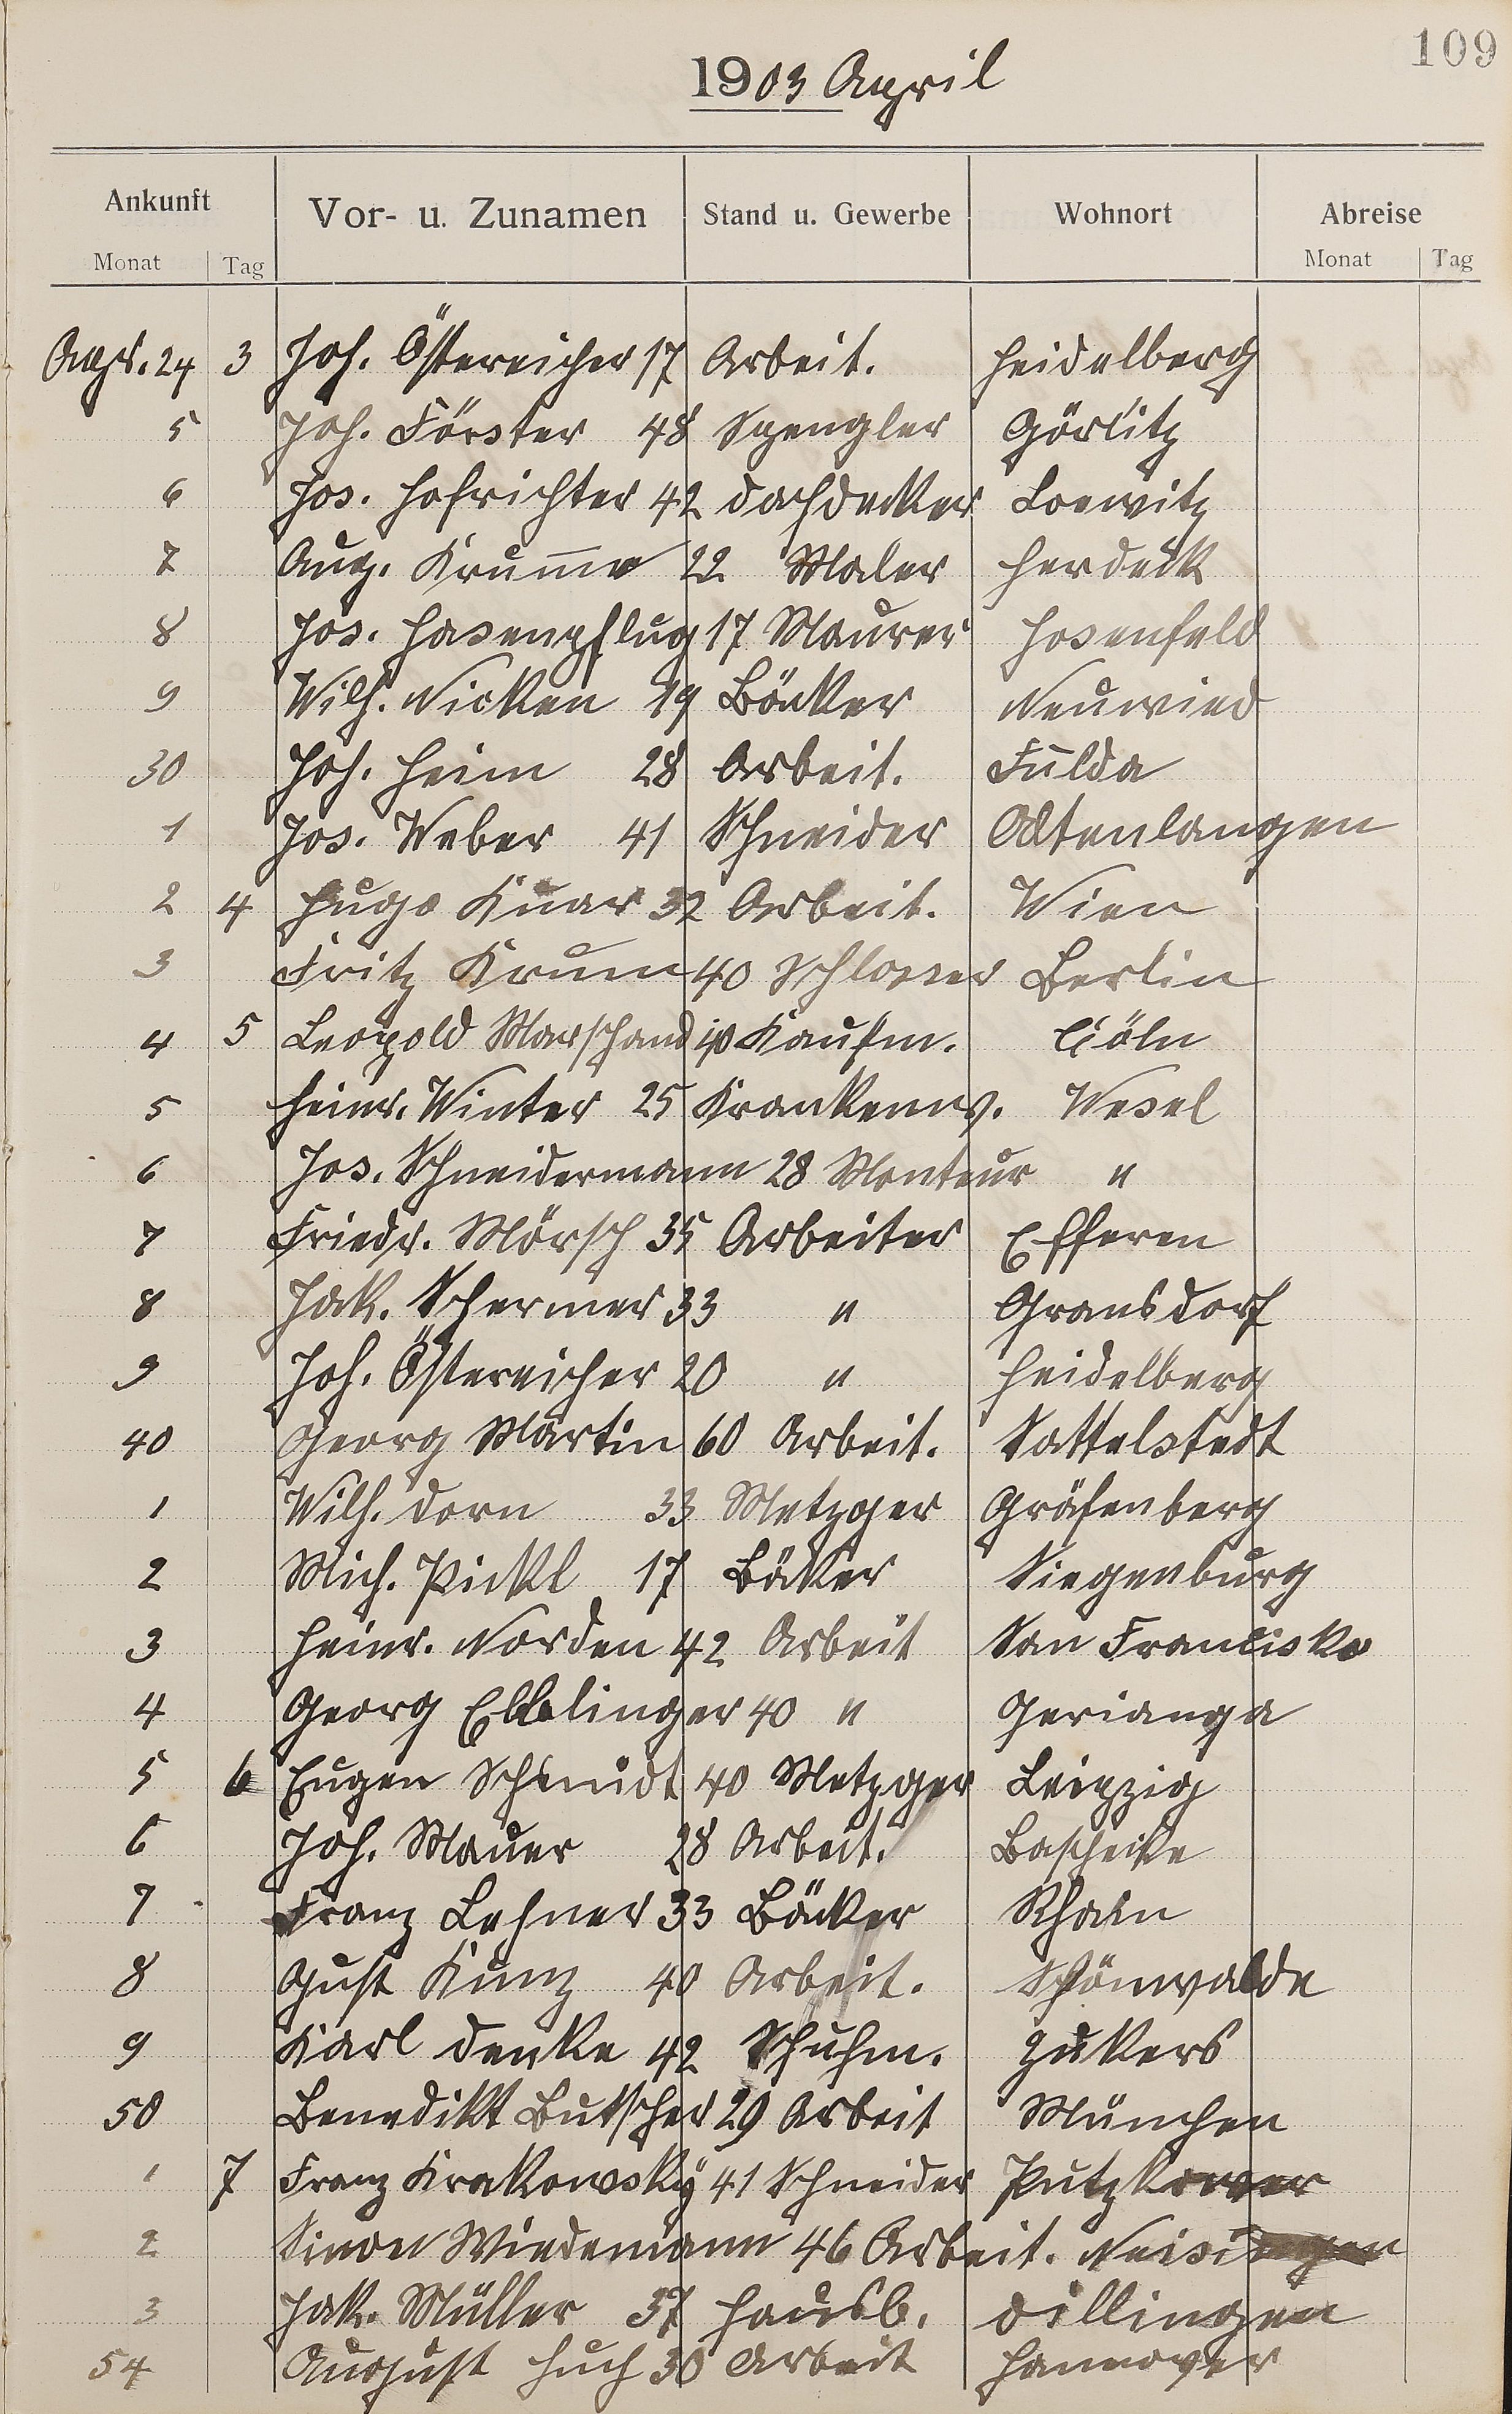 109
1903 April
Ankunft Vor- u. Zunamen Stand u. Gewerbe Wohnort Abreise
Monat Tag Monat Tag
Apr. 24 3 Joh. Östereicher 17 Arbeit. Heidelberg
5 Joh. Förster 48 Spengler Görlitz
6 Jos. Hofrichter 42 Dachdecker Loewitz
7 Aug. Krum̅e 22 Maler Herdeck
8 Jos. Hasenpflug 17 Maurer Hosenfeld
9 Wilh. Nicken 19 Bäcker Neuwied
30 Joh. Heim 28 Arbeit. Fulda
1 Jos. Weber 41 Schneider Altenlangen
2 4 Hugo Knar 32 Arbeit. Wien
3 Fritz Krum 40 Schlosser Berlin
4 5 Leopold Marschand Kaufm. Cöln
5 Heinr. Winter 25 Krankenw. Wesel
6 Jos. Schneidermann 28 Monteur "
7 Friedr. Mörsch 35 Arbeiter Efferen
8 Jak. Schermer 33 " Gransdorf
9 Joh. Östereicher 20 " Heidelberg
40 Georg Martin 60 Arbeit. Sattelstedt
1 Wilh. Dorn 33 Metzger Gräfenberg
2 Mich. Pickl 17 Bäcker Siegenburg
3 Heinr. Norden 42 Arbeit San Francisko
4 Georg 40 " Gerianga
5 6 Eugen Schmidt 40 Metzger Leipzig
6 Joh. Mauer 28 Arbeit.
7 Franz Lehner 33 Bäcker Rhain
8 Gust Kunz 40 Arbeit. Schönwalde
9 Karl Denke 42 Schuhm. Zukers
50 Benedikt Butscher 29 Arbeit München
1 7 Franz Krakowsky 41 Schneider
2 Simon Wiedemann 46 Arbeit.
3 Jak. Müller 37 Hausb. Dillingen
54 August Huch 30 Arbeit Hannover